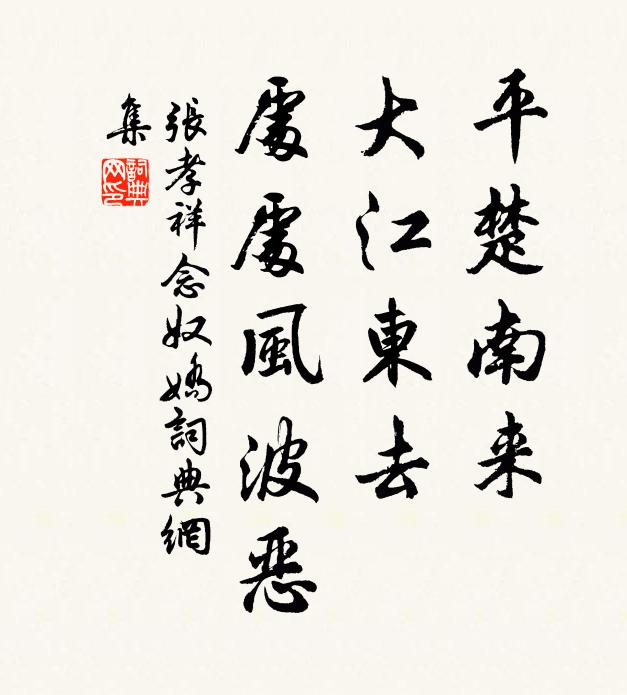 平楚南来
大江東去
處處風波惡
張孝祥念奴嬌詞典網
集
詞典網印